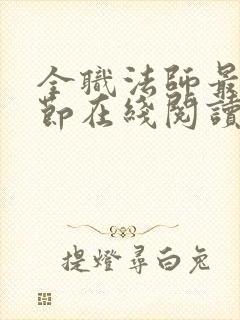 全職法師最
節在綫閱讀
提燈尋白兔